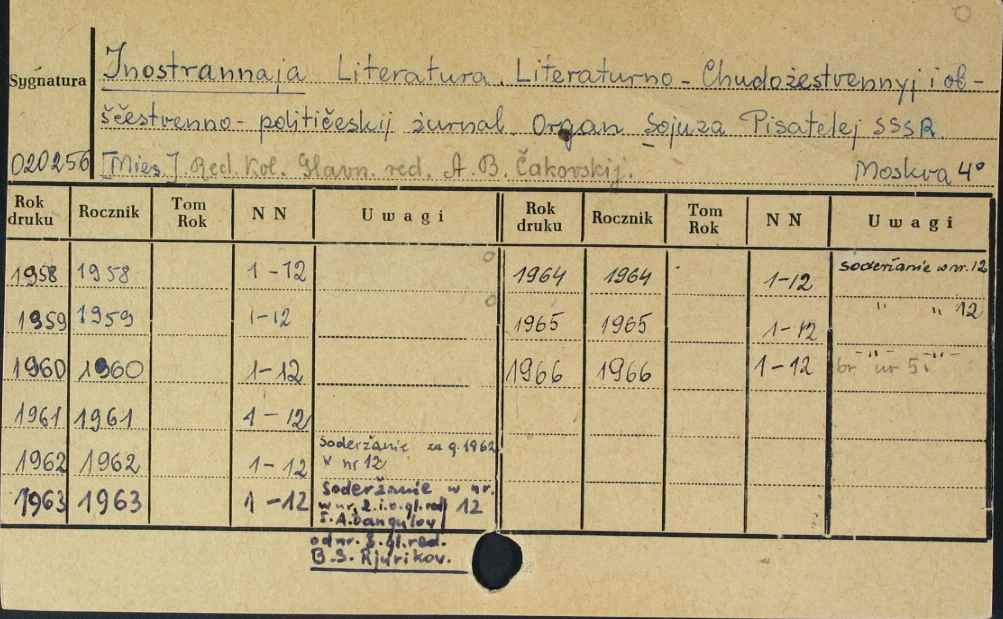 Sygnatura
Inostrannaja Literatura. Literaturno - Chudožestvennyj i ob-
ščestvenno - politićeskij żurnal. Organ Sojuza Pisatelej SSSR
020256 [Mies.] Red. Kol. Glavn. red. A. B. Čakovskij. Moskva 4°
Rok druku Rocznik Tom Rok NN Uwagi Rok druku Rocznik Tom Rok NN Uwagi
1958 1958 1-12 1964 1964 1-12 Soderžanie w nr. 12
1959 1959 1-12 1965 1965 1-12 " " 12
1960 1960 1-12 1966 1966 1-12 -"- -"- br nr 5
1961 1961 1-12
1962 1962 1-12 Soderžanie za g. 1962
v nr 12
1963 1963 1-12 Soderžanie w nr. 12
w nr. 2. i.o. gl. red
S. A. Dangulov
od nr. 8. gl. red.
B. S. Rjurikov.